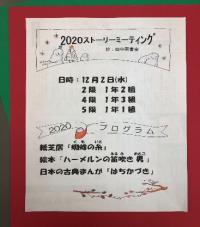 2020ストーリーミーティング
於:田中図書室
日時:12月2日(水)
2限 1年2組
4限 1年3組
5限 1年1組
2020 プログラム
紙芝居「蜘蛛の糸」
絵本「ハーメルンの笛吹き男」
日本の古典まんが「はちかづき」